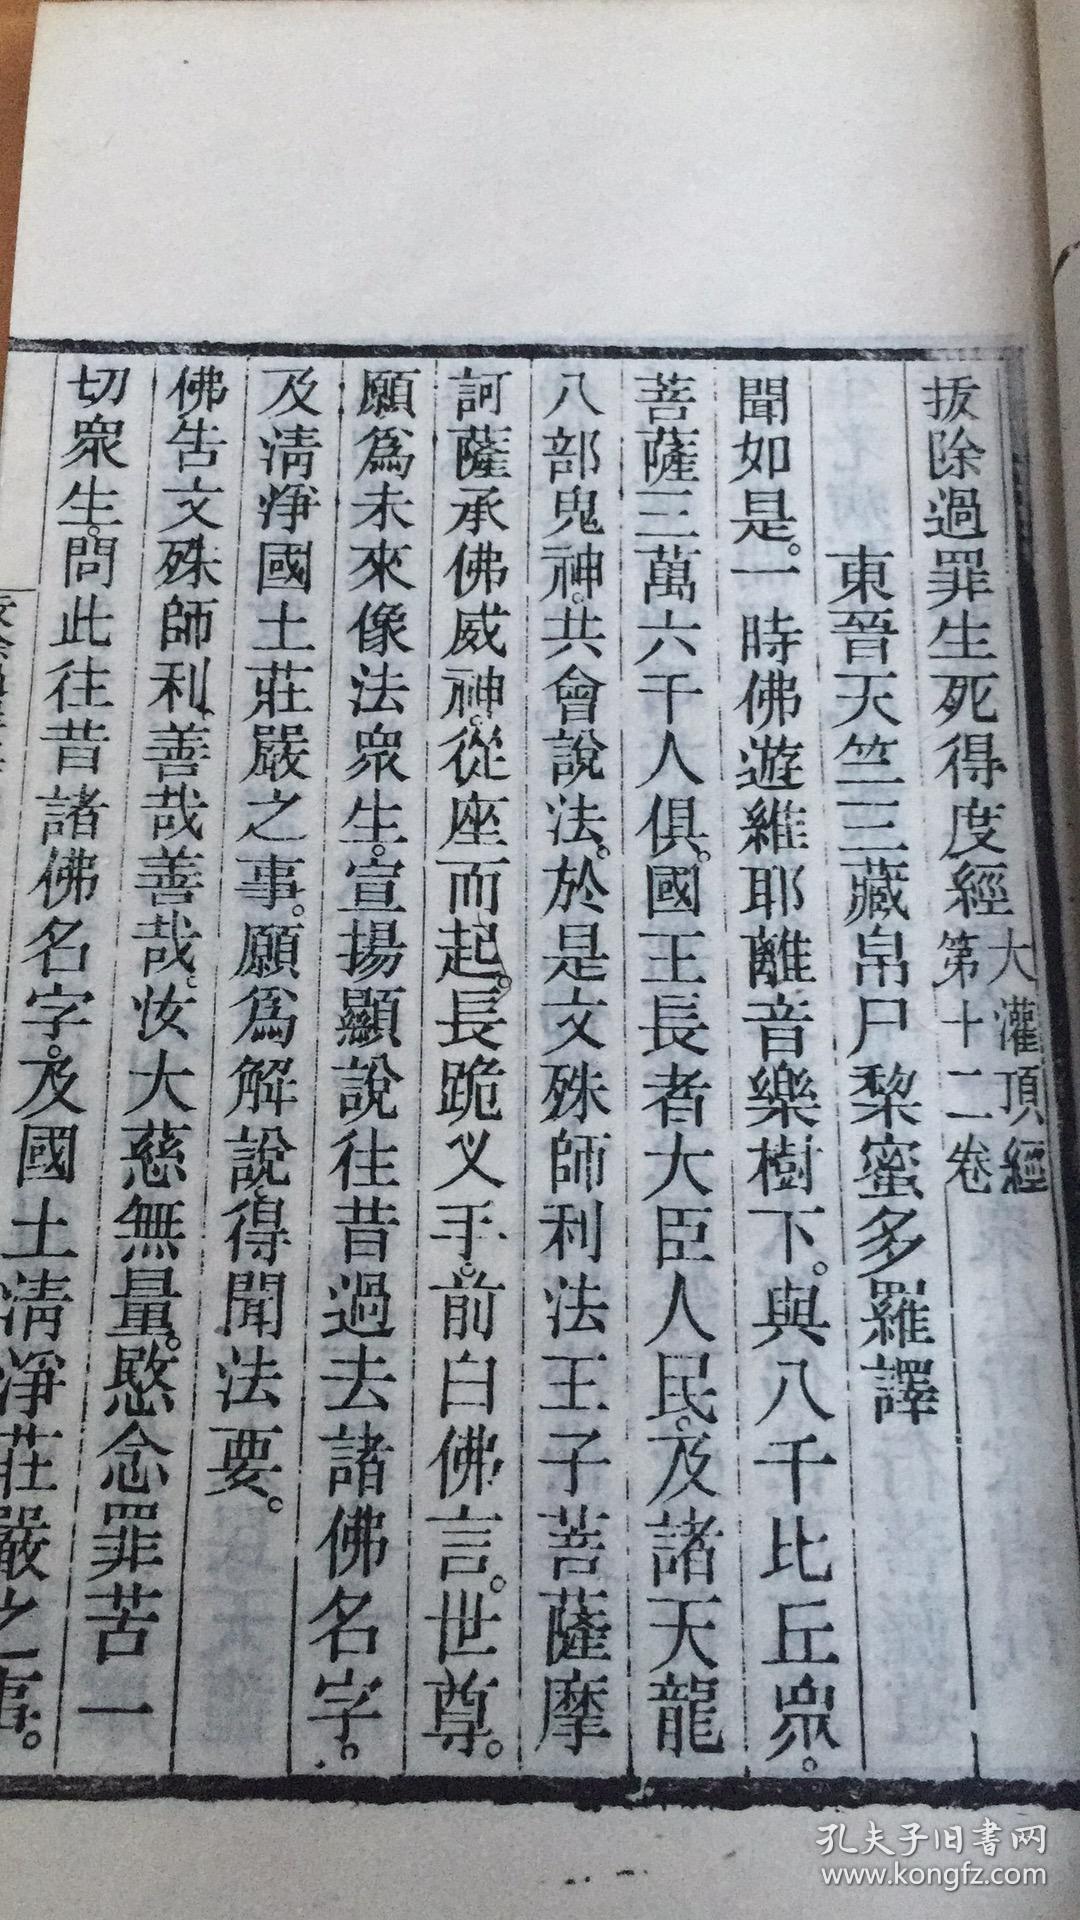 拔除過罪生死得度經大灌頂經
第十二卷
東晉天竺三藏帛尸黎蜜多羅譯
聞如是。一時佛遊維耶離音樂樹下。與八千比丘眾。
菩薩三萬六千人俱。國王長者大臣人民。及諸天龍
八部鬼神。共會說法。於是文殊師利法王子菩薩摩
訶薩承佛威神。從座而起。長跪义手。前白佛言。世尊。
願為未來像法眾生。宣揚顯說往昔過去諸佛名字。
及清淨國土莊嚴之事。願為解說。得聞法要。
佛告文殊師利。善哉善哉。汝大慈無量。愍念罪苦一
切眾生。問此往昔諸佛名字。及國土清淨莊嚴之事。
孔夫子旧書网
www.kongfz.com